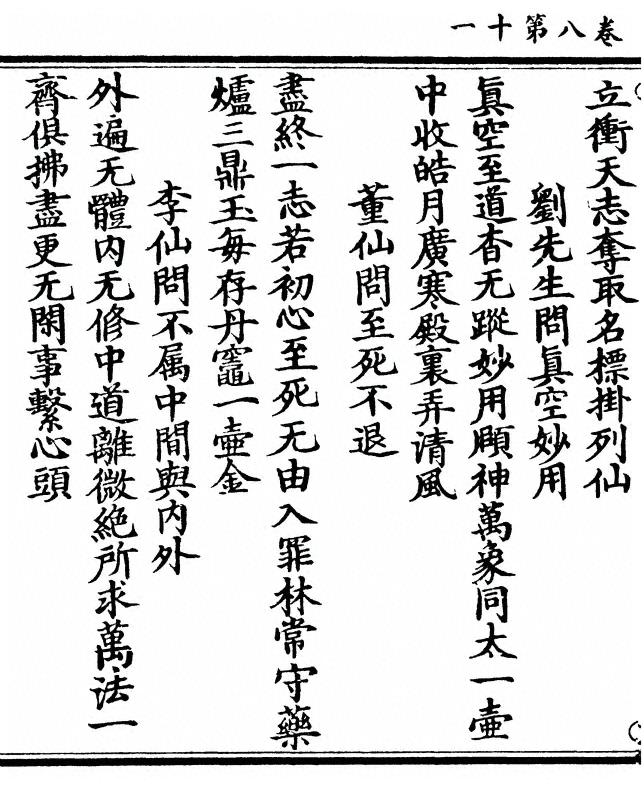 卷八第十一
立衝天志奪取名標掛列仙
劉先生問眞空妙用
眞空至道杳无蹤妙用頤神萬象同太一壷
中收皓月廣寒殿裏弄清風
董仙問至死不退
盡終一志若初心至死无由入罪林常守藥
爐三鼎玉每存丹竈一壷金
李仙問不属中間與内外
外遍无體内无修中道離微絶所求萬法一
齊俱拂盡更无閑事繫心頭